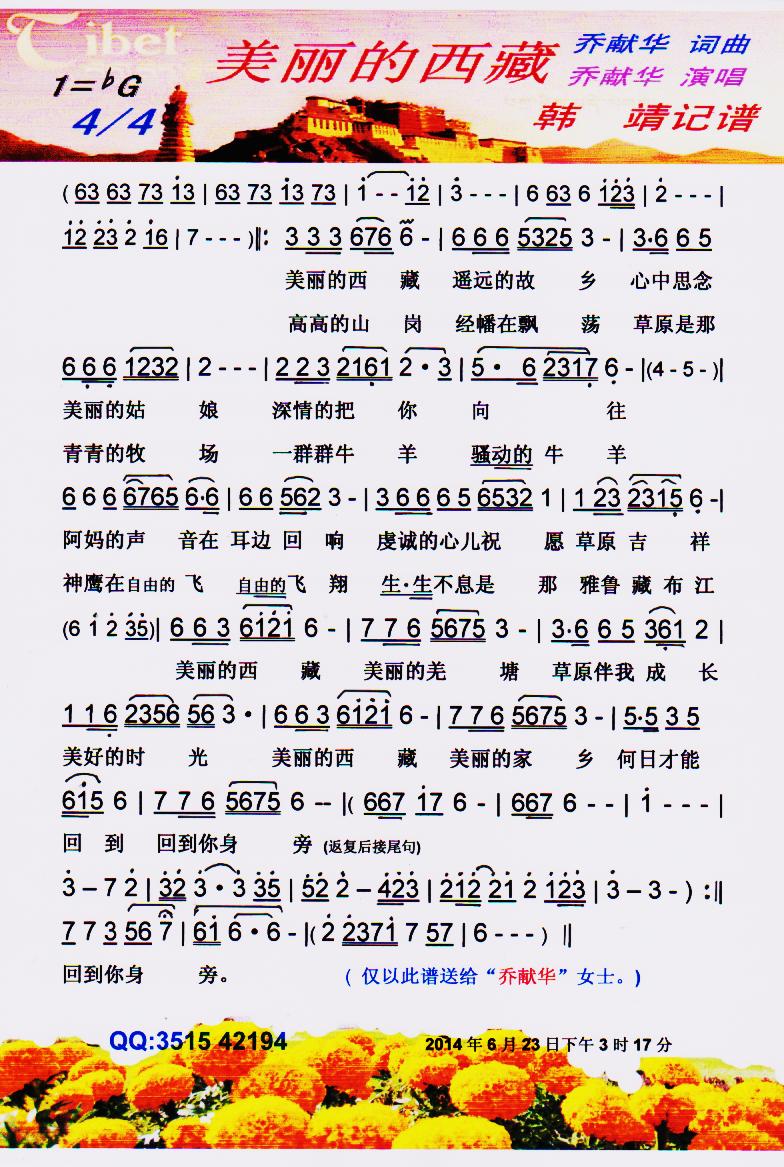 Tibet
美丽的西藏
乔献华 词曲
乔献华 演唱
韩 靖记谱
1=♭G
4/4
(63 63 73 i3 | 63 73 i3 73 | i - - i2 | 3 - - - | 6 63 6 i23 | 2 - - - |
i2 23 2 i6 | 7 - - - )‖: 3 3 3 676 6 - | 6 6 6 5325 3 - | 3·6 6 5
美丽的西 藏 遥远的故 乡 心中思念
高高的山 岗 经幡在飘 荡 草原是那
6 6 6 1232 | 2 - - - | 2 2 3 2161 2 · 3 | 5 · 6 2317 6 - |(4 - 5 - )|
美丽的姑 娘 深情的把 你 向 往
青青的牧 场 一群群牛 羊 骚动的 牛 羊
6 6 6 6765 6·6 | 6 6 562 3 - | 3 6 6 6 5 6532 1 | 1 23 2315 6 - |
阿妈的声 音在 耳边 回 响 虔诚的心儿祝 愿 草原 吉 祥
神鹰在自由的 飞 自由的飞 翔 生·生不息是 那 雅鲁 藏 布 江
(6 i 2 35)| 6 6 3 6i2i 6 - | 7 7 6 5675 3 - | 3·6 6 5 361 2 |
美丽的西 藏 美丽的羌 塘 草原伴我 成 长
1 1 6 2356 56 3 · | 6 6 3 6i2i 6 - | 7 7 6 5675 3 - | 5·5 3 5
美好的时 光 美丽的西 藏 美丽的家 乡 何日才能
6i5 6 | 7 7 6 5675 6 -- |( 667 i7 6 - | 667 6 - - | i - - - |
回 到 回到你身 旁 (返复后接尾句)
3 – 7 2 | 32 3 · 3 35 | 52 2 – 423 | 212 21 2 123 | 3 – 3 - ) :‖
7 7 3 56 7 | 6i 6 · 6 - |( 2 2371 7 57 | 6 - - - ) ‖
回到你身 旁。 ( 仅以此谱送给“乔献华”女士。)
QQ:3515 42194 2014 年 6 月 23 日下午 3 时 17 分